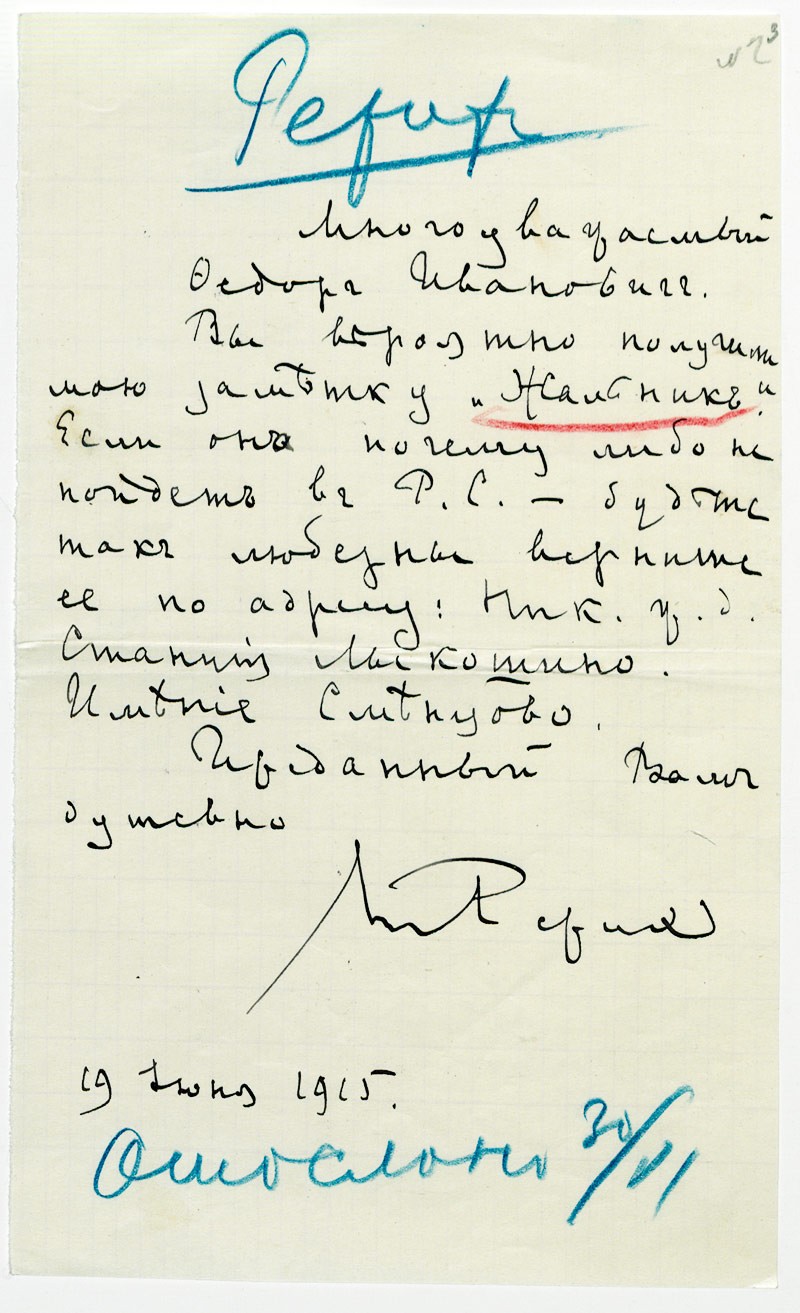 Рерих
Многоуважаемый
Ѳедоръ Ивановичъ.
Вы вѣроятно получили
мою замѣтку „Жальникъ".
Если она почему либо не
пойдетъ въ Р. С. — будьте
такъ любезны верните
ее по адресу: Ник. ж. д.
Станція Лыкошино.
Имѣніе Смѣнцово.
Преданный Вамъ
душевно
НРерих
19 Июня 1915.
Отослано 30/VI